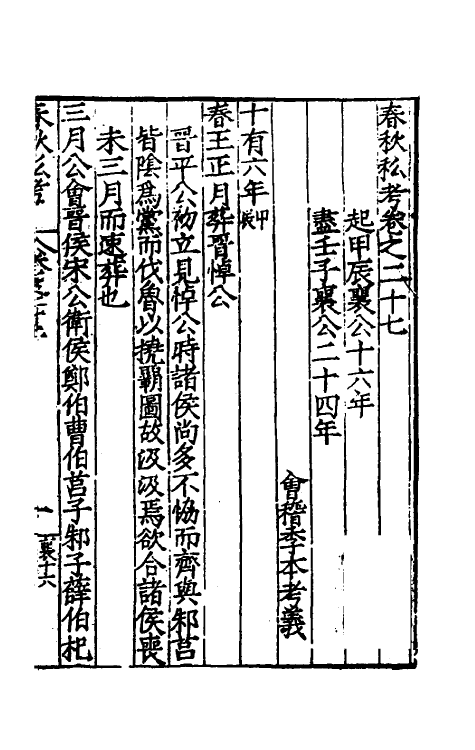 春秋私考卷之二十七
起甲辰襄公十六年
盡壬子襄公二十四年
會稽季本考義
十有六年甲辰
春王正月葬晉悼公
晉平公初立見悼公時諸侯尚多不恊而齊與邾莒
皆陰爲黨而伐魯以撓覇圖故汲汲焉欲合諸侯喪
未三月而速葬也
三月公會晉侯宋公衛侯鄭伯曹伯莒子邾子薛伯杞
春秋私考
一
襄十六